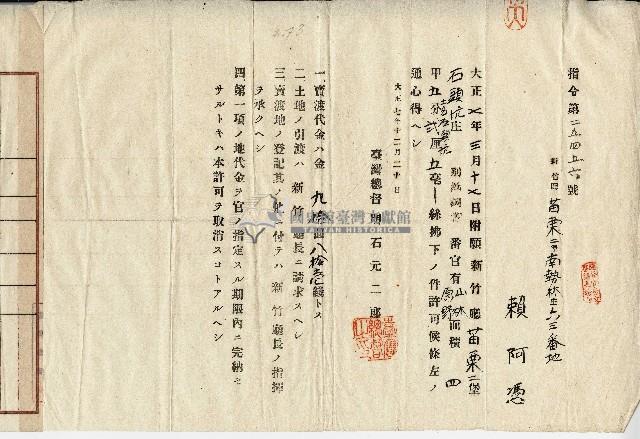 指令第二五四五六號
新竹廳苗栗二堡南勢林庄六三番地
賴阿憑
大正七年三月十七日附願新竹廳苗栗二堡
石頭坑庄 番官有山林原野面積四
甲五分貳厘五毫一絲拂下ノ件許可候條左ノ
通心得ヘシ
大正七年十二月二十日
臺灣總督明石元二郎
一、賣渡代金ハ金九拾圓八拾壱錢トス
二、土地ノ引渡ハ新竹廳長ニ請求スヘシ
三、賣渡地ノ登記其ノ他ニ付テハ新竹廳長ノ指揮
ヲ承クヘシ
四、第一項ノ地代金ヲ官ノ指定スル期限內ニ完納セ
サルトキハ本許可ヲ取消スコトアルヘシ
國史館臺灣文獻館
TAIWAN HISTORICA